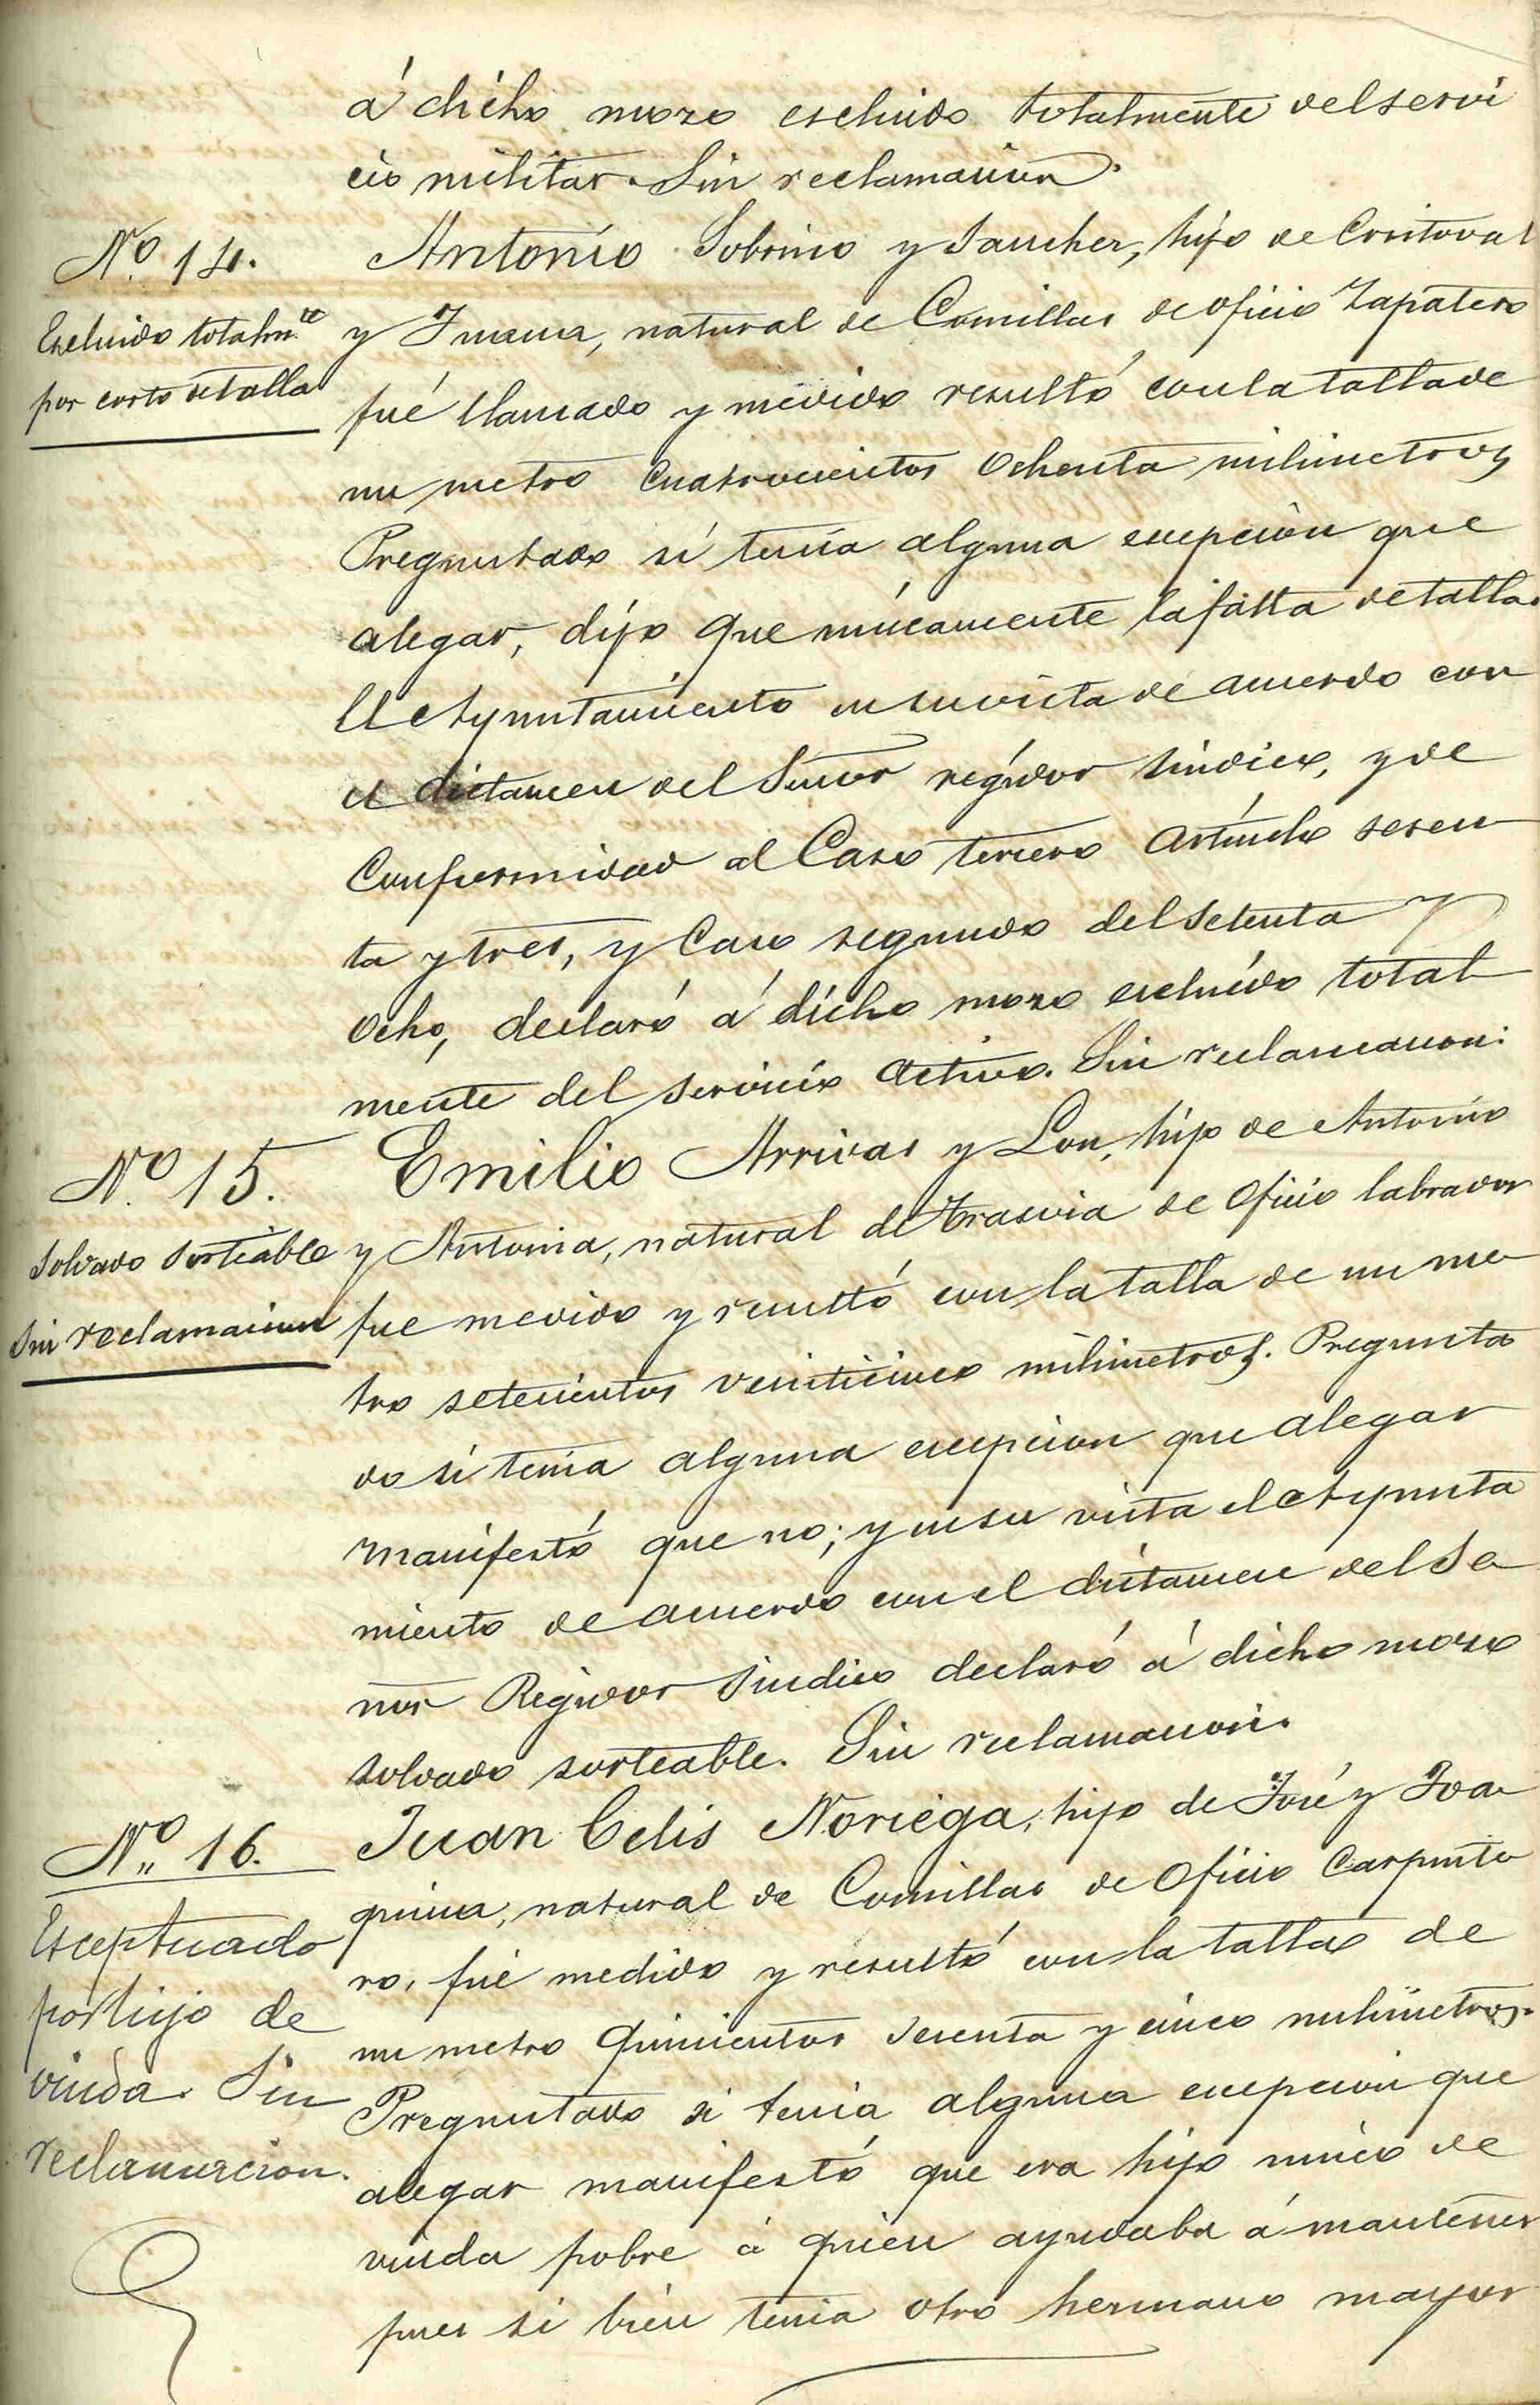 á dicho mozo escluido totalmente del servi
cio militar. Sin reclamacion.
Nº 14.
Escluido totalm.te
por corto de talla
Antonio Sobrino y Sanchez, hijo de Cristoval
y Juana, natural de Comillas de oficio Zapatero
fué llamado y medido resultó con la talla de
un metro cuatrocientos ochenta milimetros
Preguntado si tenía alguna escepción que
alegar, dijo que únicamente la falta de talla.
El Ayuntamiento en su vista de acuerdo con
el dictamen del Señor regidor síndico, y de
Conformidad al Caso tercero artículo sesen
ta y tres, y Caso segundo del setenta y
Ocho, declaró á dicho mozo escluído total
mente del servicio activo. Sin reclamacion.
Nº 15.
Soldado Sorteable
Sin reclamacion
Emilio Arrivas y Lon, hijo de Antonio
y Antonia, natural de Trasvia de oficio labrador
fue medido y resultó con la talla de un me
tro setecientos veinticinco milimetros. Pregunta
do si tenía alguna escepcion que alegar
manifestó que no; y en su vista el Ayunta
miento de acuerdo con el dictamen del Se
ñor Regidor Sindico declaró á dicho mozo
soldado sorteable. Sin reclamacion.
Nº 16.
Esceptuado
por hijo de
viuda. Sin
reclamacion.
Juan Celis Noriega, hijo de José y Joa
quina, natural de Comillas de Oficio Carpinte
ro, fué medido y resultó con la talla de
un metro quinientos sesenta y cinco milimetros.
Preguntado si tenia alguna escepcion que
alegar manifestó que era hijo único de
viuda pobre á quien ayudaba á mantener
pues si bien tenia otro hermano mayor